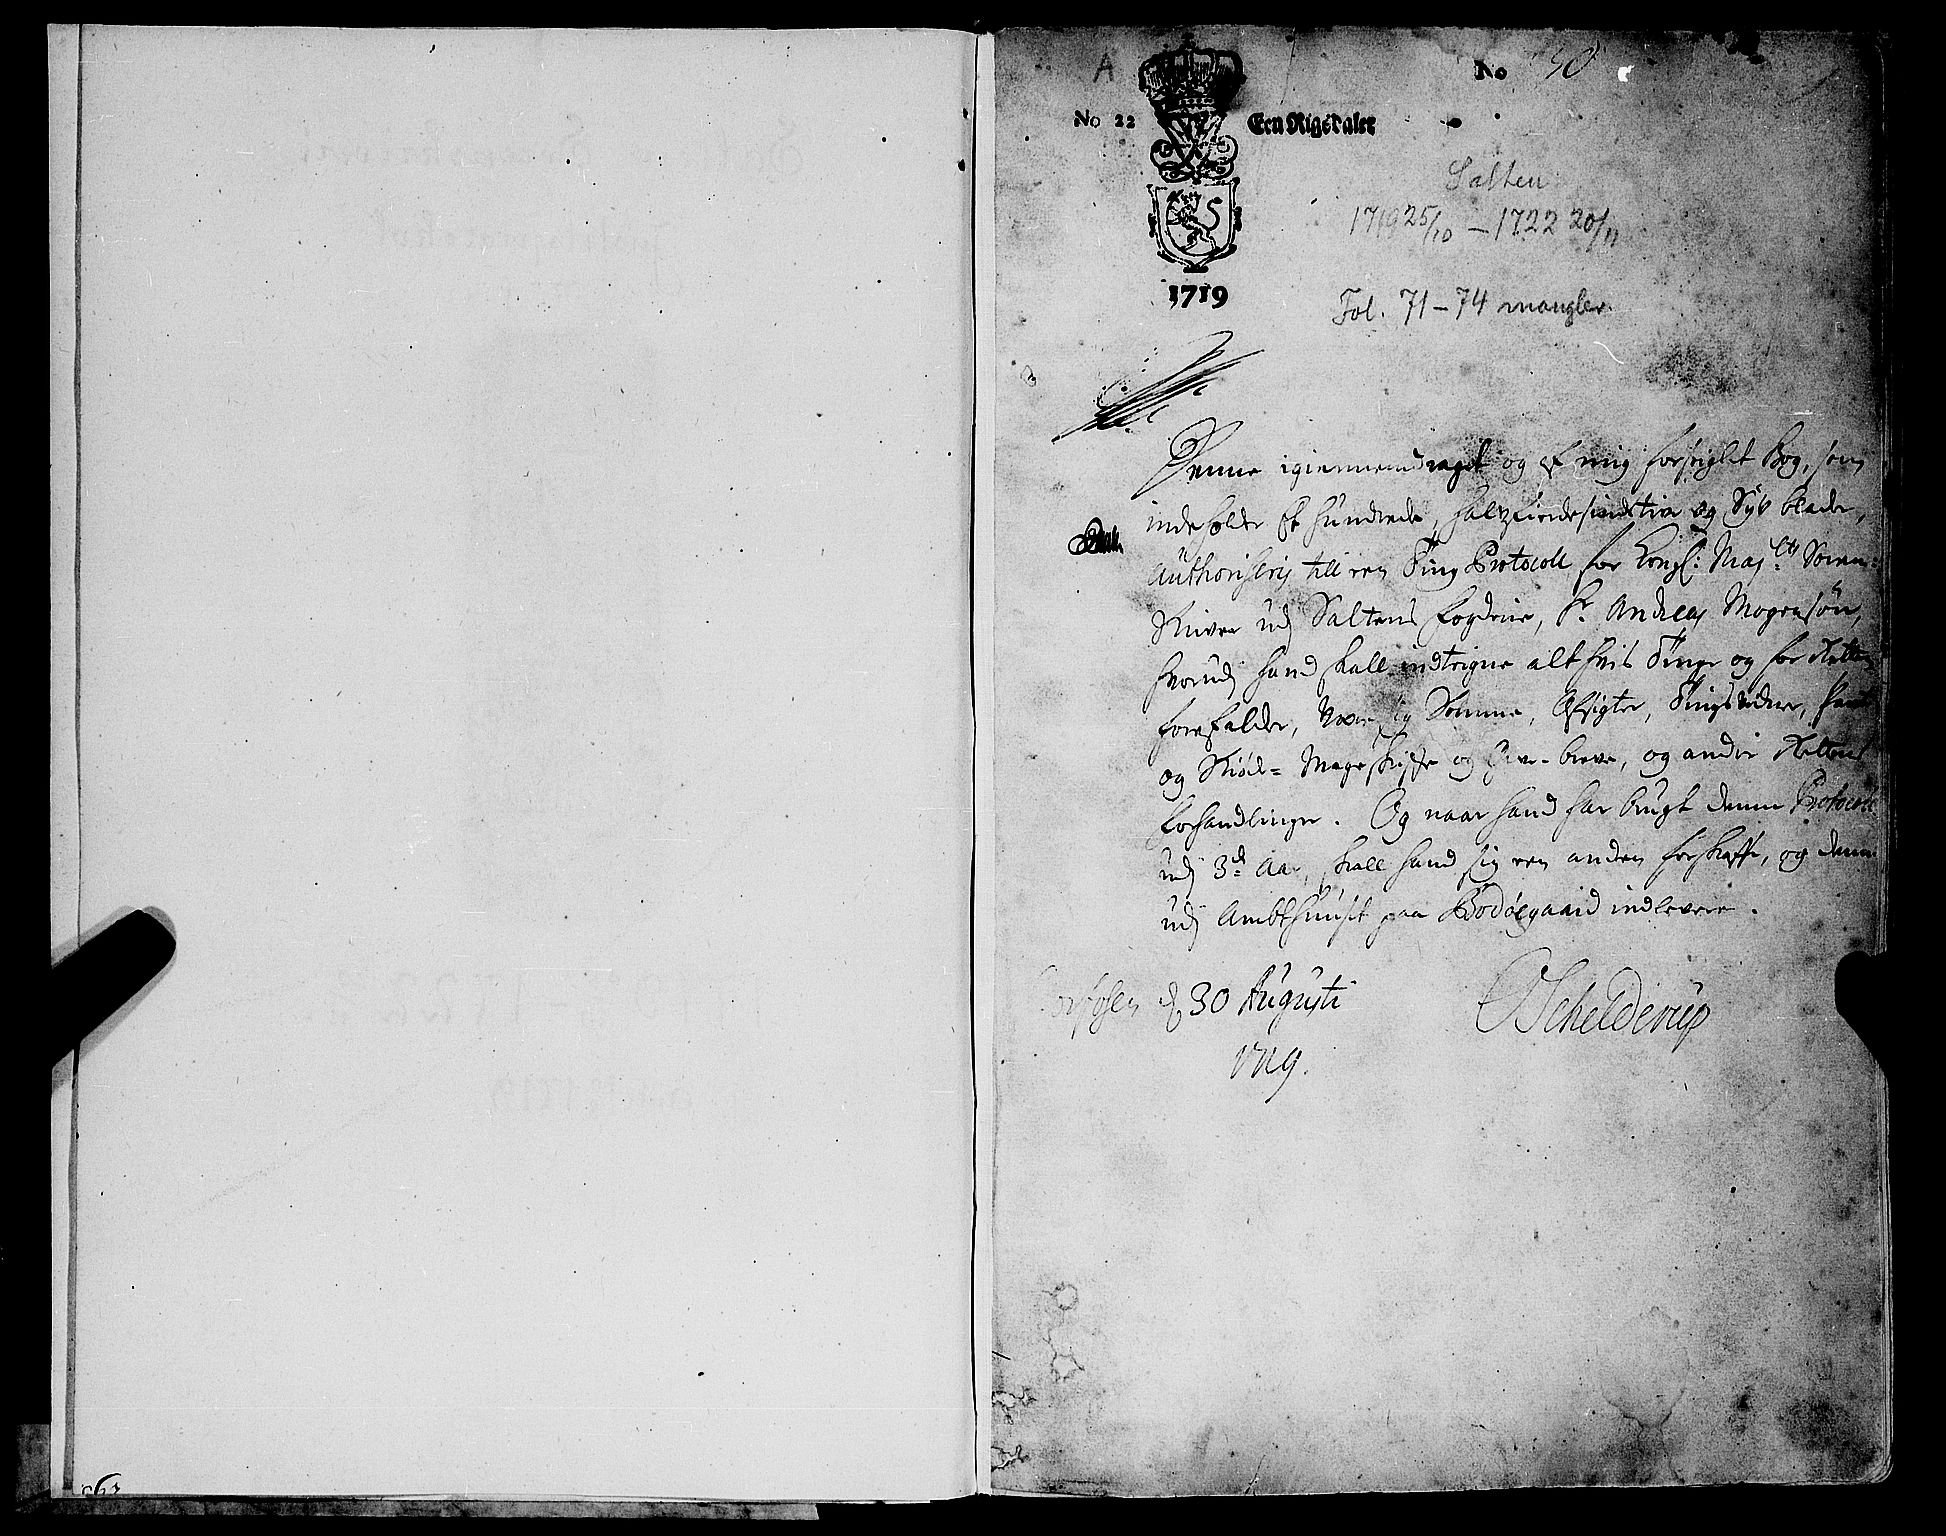 A
No 50
No 22
Een Rigsdaler
Salten
1719 25/10 – 1722 20/11
1719
Fol. 71 – 74 mangler.
Denne igiennemdraget og af mig forseiglet Bog, som
indeholder Et hundrede, halvfierdesindstive og Syv blade,
Authoriseris till een Ting Protocoll for Kongl: Maj.ts Soren=
skriver udj Saltens fogderie, Sr. Andreas Mogensøn,
hvorudj hand skall indteigne alt hvis Tinge og for Retten
forefalder, være sig Domme, Afsigter, Tingsvidner, Pant
og Skiøde= Mageskiffte og Gave-breve, og andre Rettens
forhandlinger. Og naar hand har brugt denne Protocoll
udj 3de Aar, skall hand sig een anden forskaffe, og denne
udj Ambthuuset paa Bodøegaard indlevere.
d 30 Augusti
Schelderup
1719.